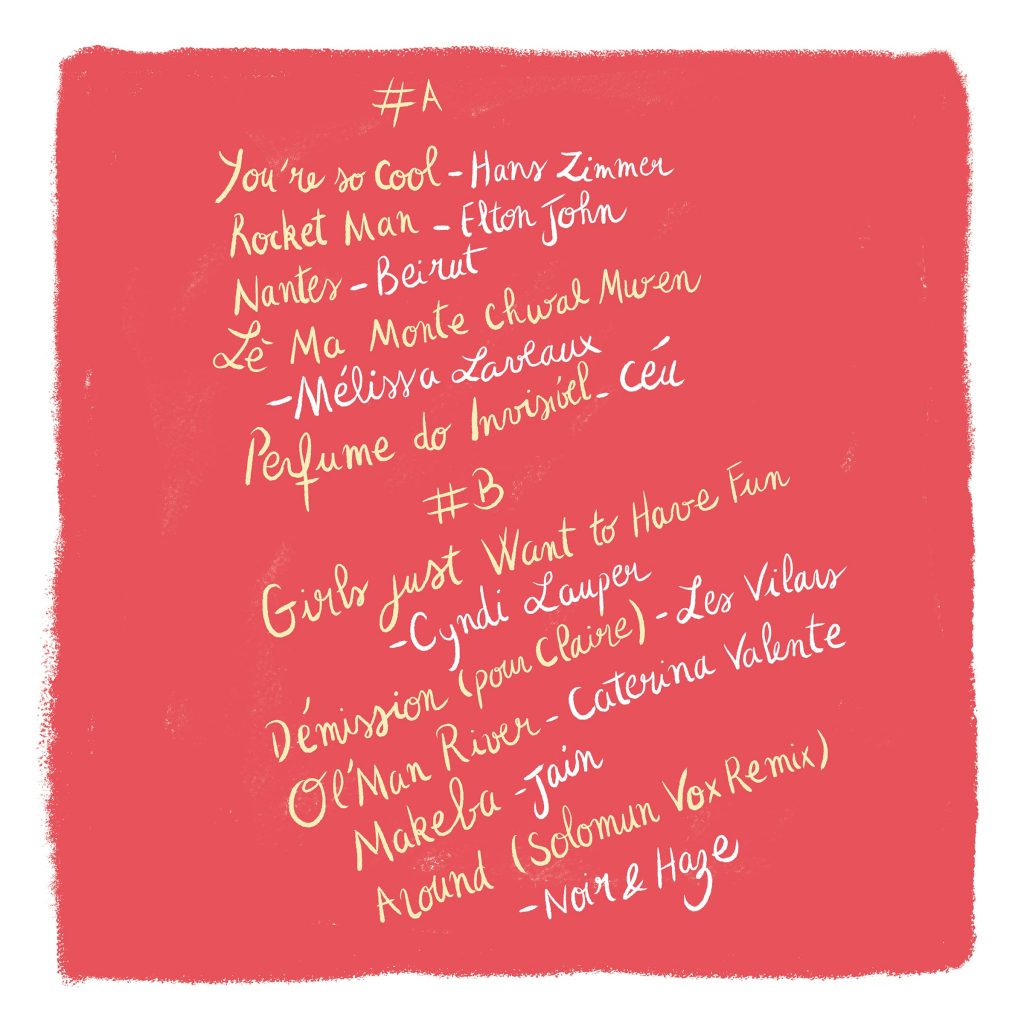 #A
You're so Cool - Hans Zimmer
Rocket Man - Elton John
Nantes - Beirut
Lè Ma Monte Chwal Mwen
- Mélissa Laveaux
Perfume do Invisível - Céu
#B
Girls just Want to Have Fun
- Cyndi Lauper
Démission (pour Claire) - Les Vilars
Ol'Man River - Caterina Valente
Makeba - Jain
Around (Solomun Vox Remix)
- Noir & Haze